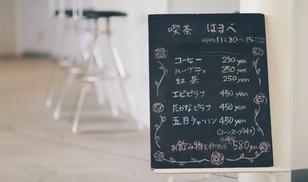 喫茶 はまべ
open 11:30〜15:
コーヒー 250 yen
ハーブティ 250 yen
紅茶 250 yen
エビピラフ 450 yen
たかなピラフ 450 yen
五目チャーハン 450 yen
お飲み物を付けたら 580 yen